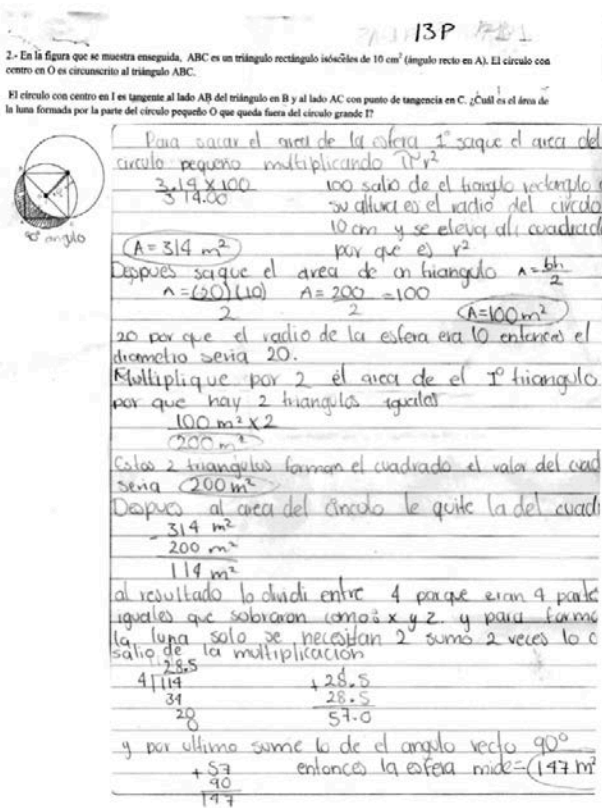 13P
2.- En la figura que se muestra enseguida, ABC es un triángulo rectángulo isósceles de 10 cm² (ángulo recto en A). El círculo con
centro en O es circunscrito al triángulo ABC.
El círculo con centro en I es tangente al lado AB del triángulo en B y al lado AC con punto de tangencia en C. ¿Cuál es el área de
la luna formada por la parte del círculo pequeño O que queda fuera del círculo grande I?
90° angulo
Para sacar el area de la esfera 1° saque el area del
circulo pequeño multiplicando π r²
3.14 x 100
314.00
100 salio de el triangulo rectangulo
su altura es el radio del circulo
10 cm y se eleva al cuadrad
por que es r²
A = 314 m²
Despues saque el area de un triangulo A = bh
2
A = (20)(10) A = 200 = 100
2 2
A=100 m²
20 por que el radio de la esfera era 10 entonces el
diametro seria 20.
Multiplique por 2 el area de el 1° triangulo
por que hay 2 triangulos iguales
100 m² x 2
200 m²
Estos 2 triangulos forman el cuadrado el valor del cuad
seria 200 m²
Despues al area del circulo le quite la del cuad
- 314 m²
200 m²
114 m²
al resultado lo dividi entre 4 porque eran 4 parte
iguales que sobraron como x y z. y para forma
la luna solo se necesitan 2 sumo 2 veces lo
salio de la multiplicación
28.5
4 114
34
20
+ 28.5
28.5
57.0
y por ultimo sume lo de el angulo recto 90°
entonces la esfera mide = 147 m²
+ 57
90
147